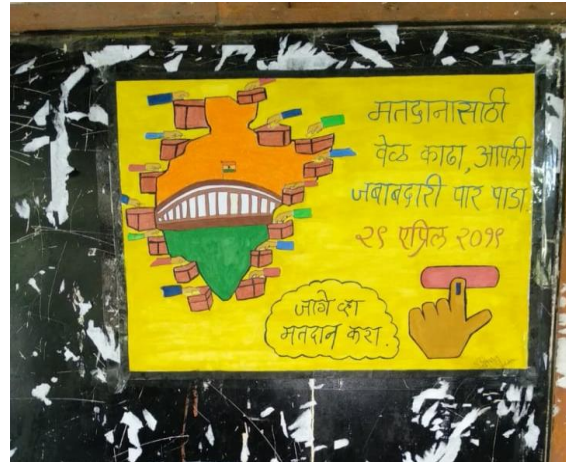 मतदानासाठी
वेळ काढा, आपली
जबाबदारी पार पाडा
२९ एप्रिल २०१९
जागे व्हा
मतदान करा.